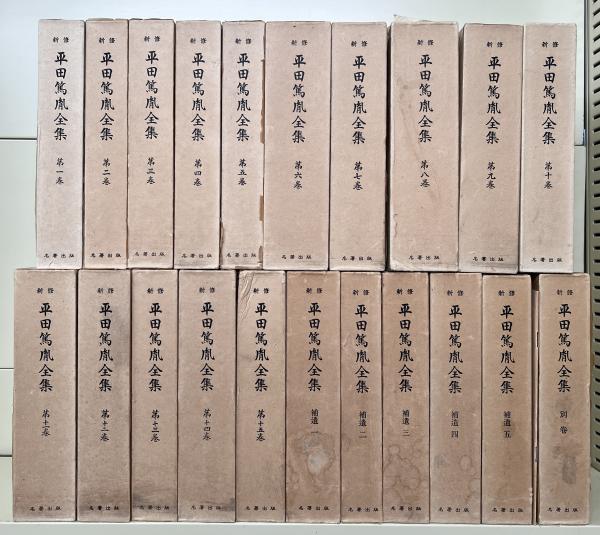 新修
平田篤胤全集
第一巻
名著出版
新修
平田篤胤全集
第二巻
名著出版
新修
平田篤胤全集
第三巻
名著出版
新修
平田篤胤全集
第四巻
名著出版
新修
平田篤胤全集
第五巻
名著出版
新修
平田篤胤全集
第六巻
名著出版
新修
平田篤胤全集
第七巻
名著出版
新修
平田篤胤全集
第八巻
名著出版
新修
平田篤胤全集
第九巻
名著出版
新修
平田篤胤全集
第十巻
名著出版
新修
平田篤胤全集
第十一巻
名著出版
新修
平田篤胤全集
第十二巻
名著出版
新修
平田篤胤全集
第十三巻
名著出版
新修
平田篤胤全集
第十四巻
名著出版
新修
平田篤胤全集
第十五巻
名著出版
新修
平田篤胤全集
補遺一
名著出版
新修
平田篤胤全集
補遺二
名著出版
新修
平田篤胤全集
補遺三
名著出版
新修
平田篤胤全集
補遺四
名著出版
新修
平田篤胤全集
補遺五
名著出版
新修
平田篤胤全集
別巻
名著出版